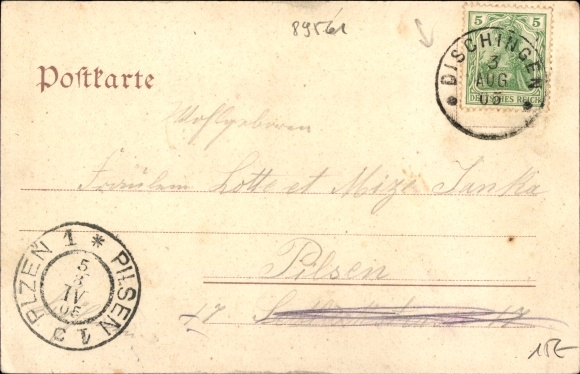 89561
5 5
DEUTSCHES REICH
* DISCHINGEN *
3
AUG
05
Postkarte
Wohlgeboren
Fräulein Lotte et Mizi Janka
Pilsen
47
17
PLZEŇ 1 * PILSEN 1
5
IV
05